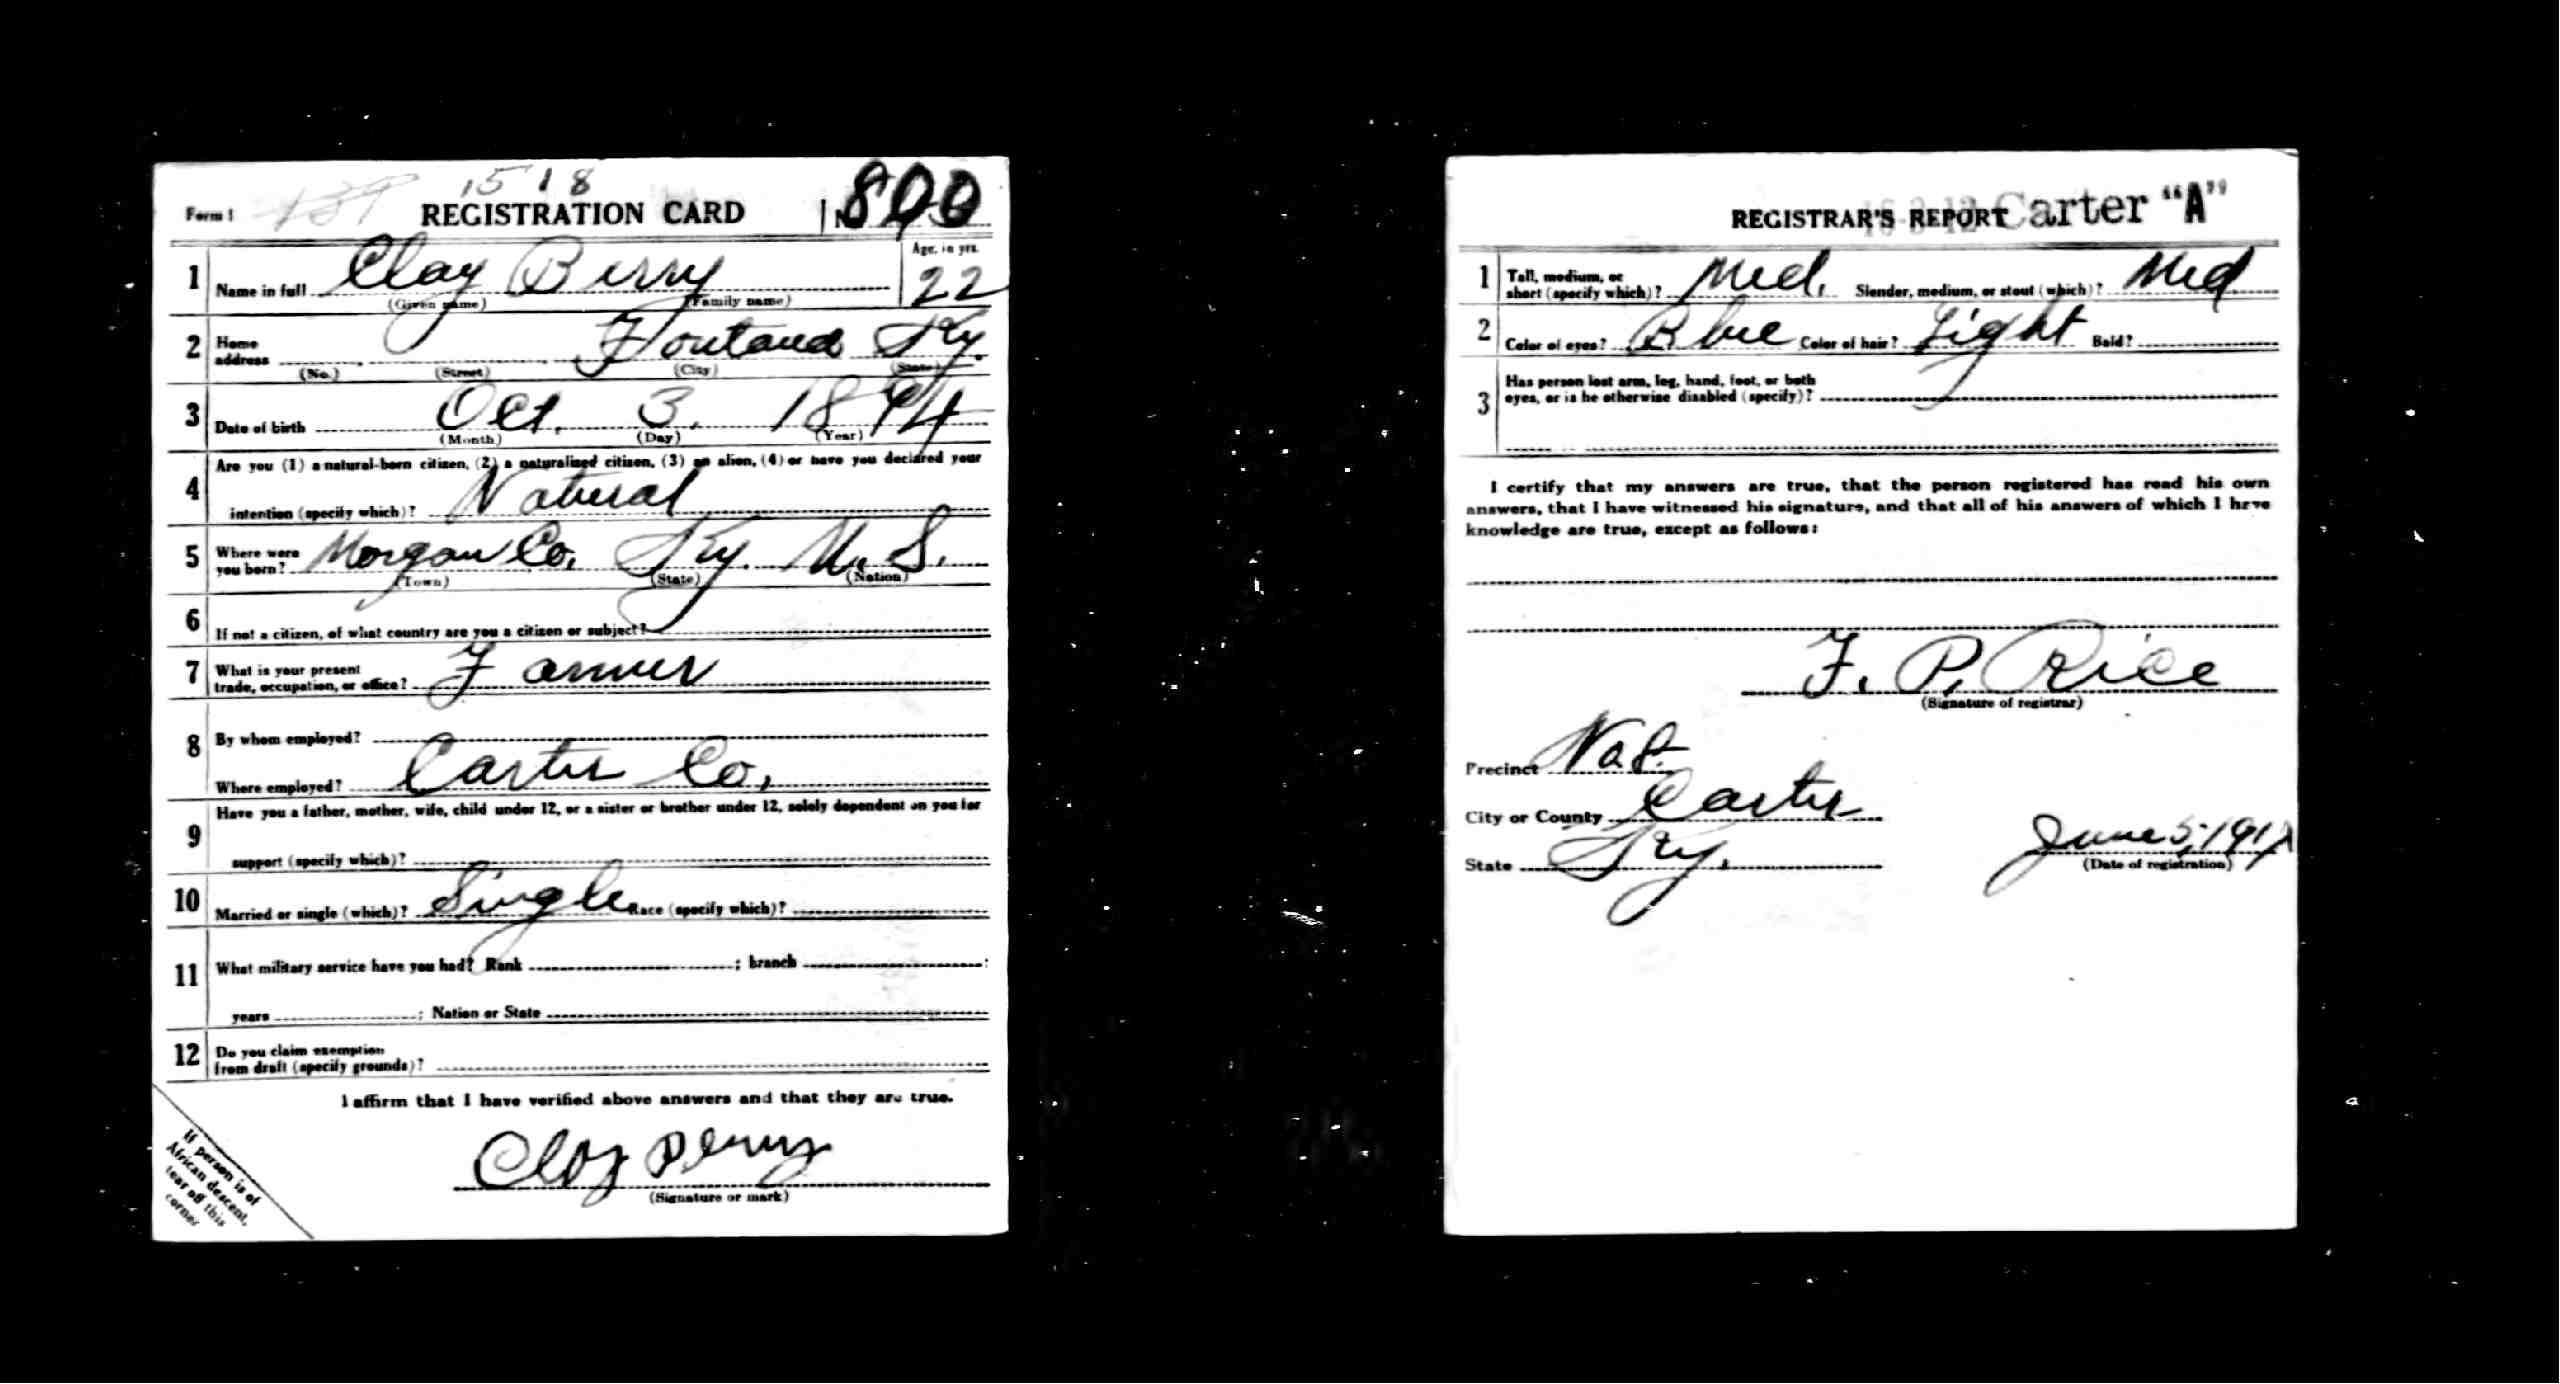 1518
Form 1 REGISTRATION CARD No. 800
1 Name in full Clay Berry Age, in yrs. 22
(Given name) (Family name)
2 Home address Fontana Ky.
(No.) (Street) (City) (State)
3 Date of birth Oct. 3. 1894
(Month) (Day) (Year)
4 Are you (1) a natural-born citizen, (2) a naturalized citizen, (3) an alien, (4) or have you declared your
intention (specify which)? Natural
5 Where were you born? Morgan Co. Ky. U. S.
(Town) (State) (Nation)
6 If not a citizen, of what country are you a citizen or subject?
7 What is your present
trade, occupation, or office? Farmer
8 By whom employed?
Where employed? Carter Co.
9 Have you a father, mother, wife, child under 12, or a sister or brother under 12, solely dependent on you for
support (specify which)?
10 Married or single (which)? Single Race (specify which)?
11 What military service have you had? Rank ; branch ;
years ; Nation or State
12 Do you claim exemption
from draft (specify grounds)?
I affirm that I have verified above answers and that they are true.
Clay Berry
(Signature or mark)
If person is of
African descent,
tear off this
corner
REGISTRAR'S REPORT Carter "A"
1 Tall, medium, or
short (specify which)? Med. Slender, medium, or stout (which)? Med
2 Color of eyes? Blue Color of hair? Light Bald?
3 Has person lost arm, leg, hand, foot, or both
eyes, or is he otherwise disabled (specify)?
I certify that my answers are true, that the person registered has read his own
answers, that I have witnessed his signature, and that all of his answers of which I have
knowledge are true, except as follows:
F. P. Rice
(Signature of registrar)
Precinct No 8.
City or County Carter
State Ky.
June 5, 1917
(Date of registration)